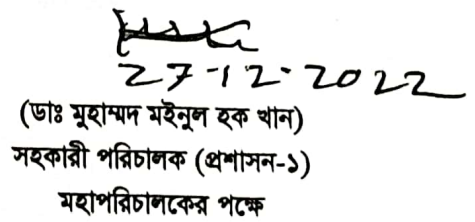 27-12-2022
(ডাঃ মুহাম্মদ মইনুল হক খান)
সহকারী পরিচালক (প্রশাসন-১)
মহাপরিচালকের পক্ষে